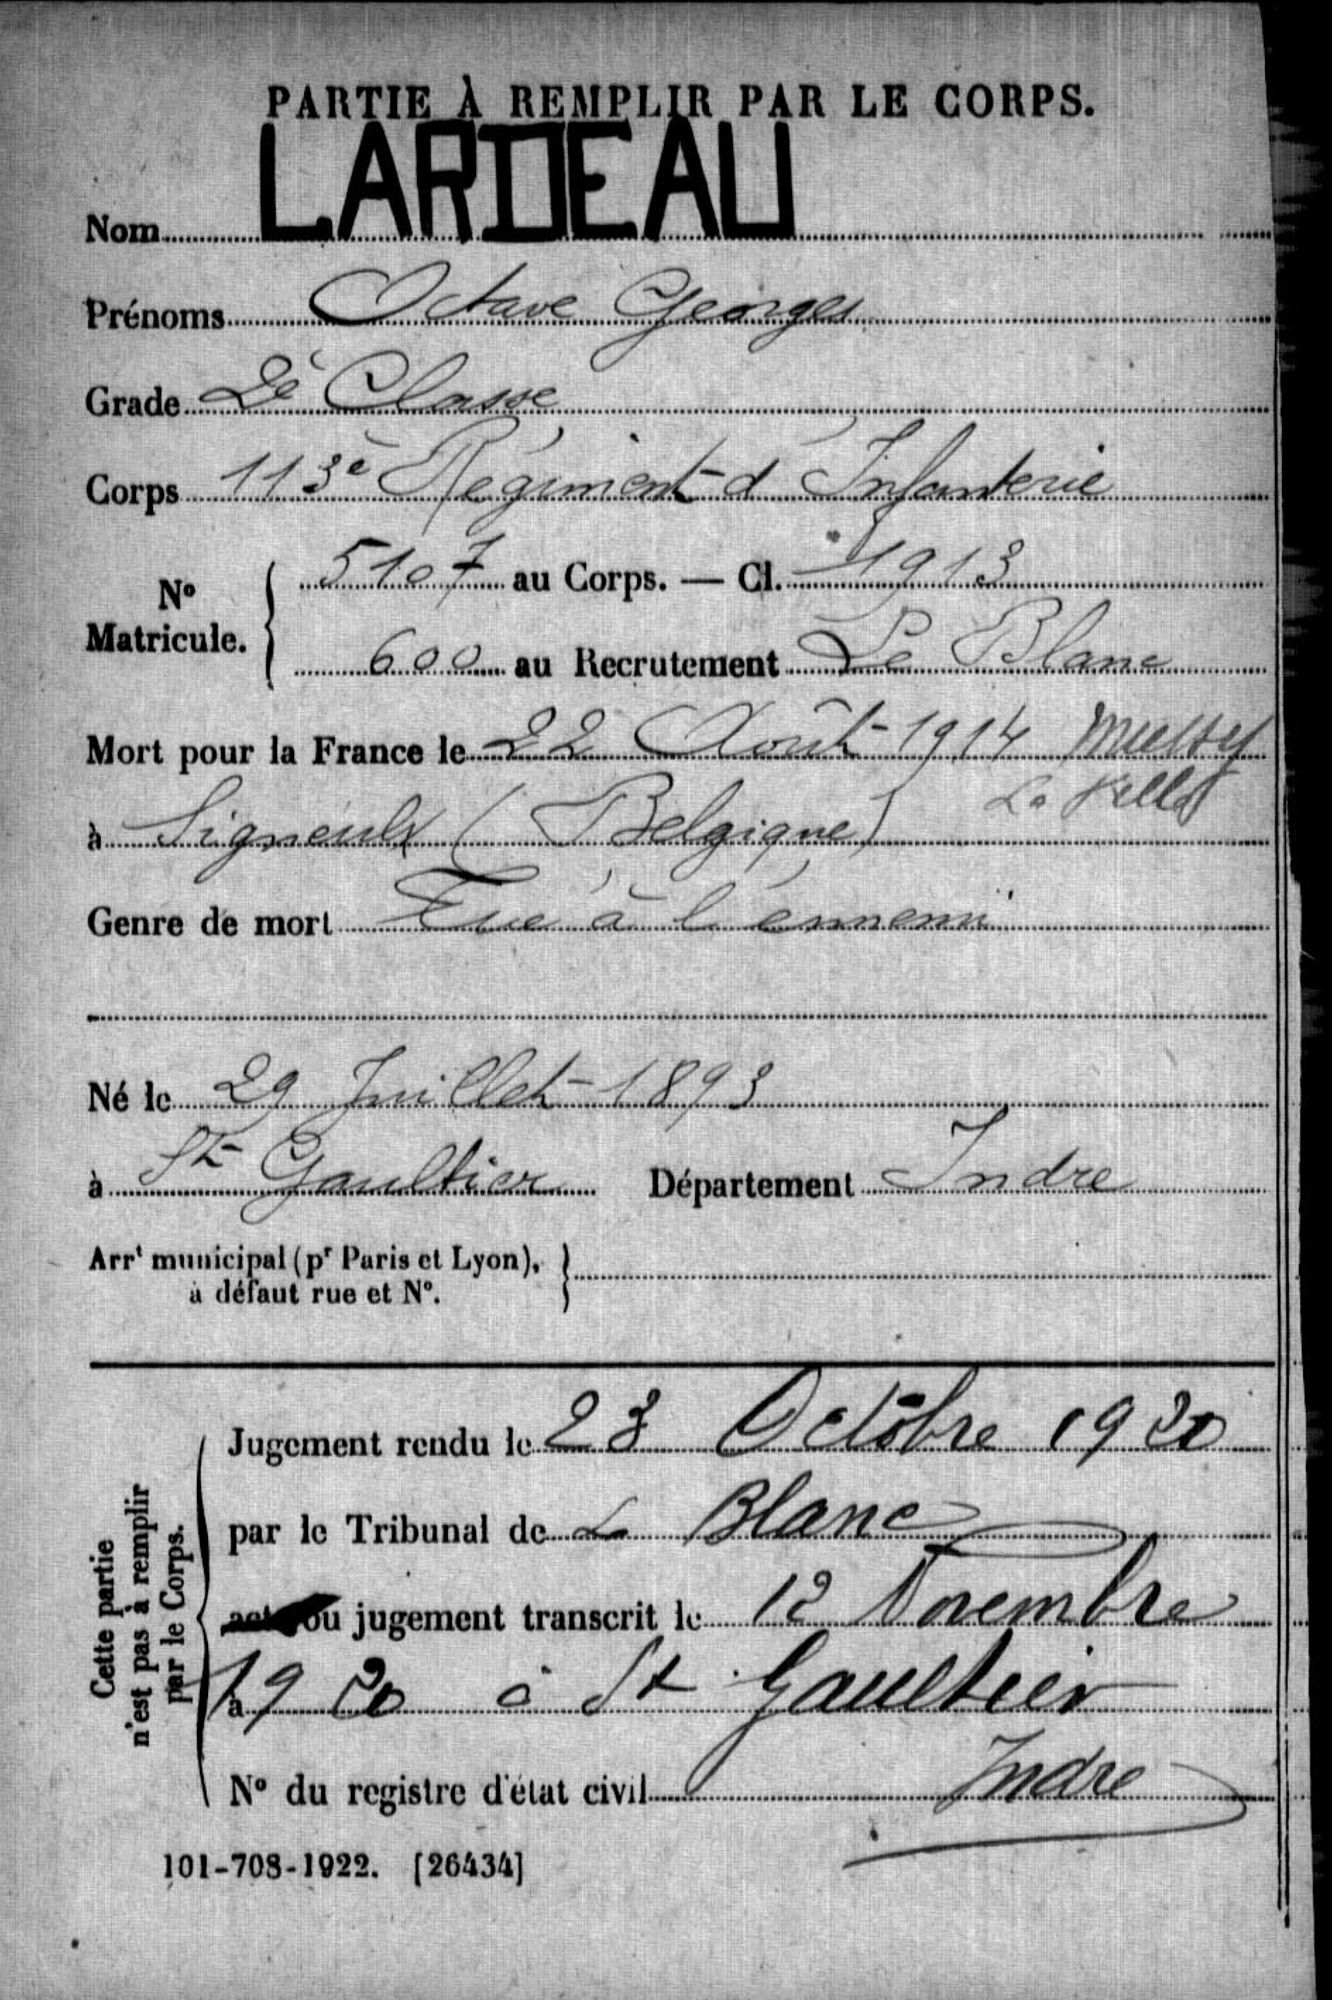 PARTIE À REMPLIR PAR LE CORPS.
Nom LARDEAU
Prénoms Octave Georges
Grade 2e Classe
Corps 113e Régiment d'Infanterie
No Matricule. 5107 au Corps. — Cl. 1913
600 au Recrutement Le Blanc
Mort pour la France le 22 Août 1914 Mussy
à Signeulx (Belgique) La Ville
Genre de mort Tué à l'ennemi
Né le 29 Juillet 1893
à St Gaultier Département Indre
Arrt municipal (pr Paris et Lyon),
à défaut rue et No.
Cette partie
n'est pas à remplir
par le Corps.
Jugement rendu le 23 Octobre 1920
par le Tribunal de Le Blanc
acte ou jugement transcrit le 12 Novembre
à 1920 à St Gaultier
No du registre d'état civil Indre
101-708-1922. [26434]